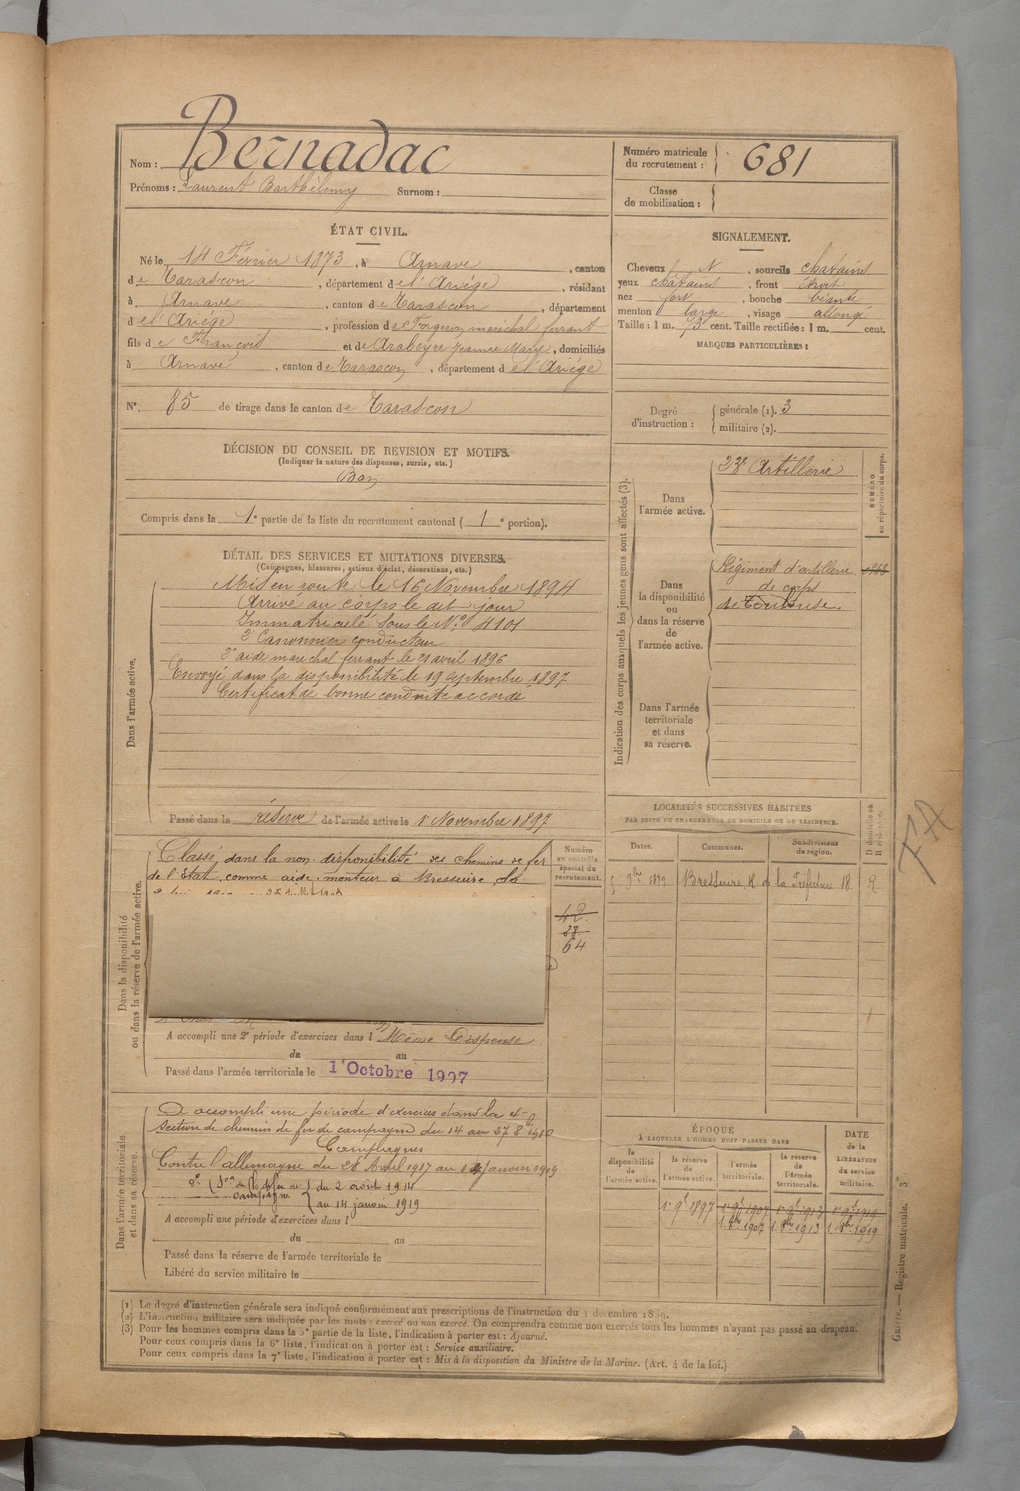 Nom : Bernadac
Prénoms : Laurent Barthélemy Surnom :
Numéro matricule du recrutement : 681
Classe de mobilisation :
ÉTAT CIVIL.
Né le 14 Février 1873, à Arnave, canton
de Tarascon, département de l'Ariège, résidant
à Arnave, canton de Tarascon, département
de l'Ariège, profession de Forgeron maréchal ferrant
fils de François et de Arabeyre Jeanne Marie, domiciliés
à Arnave, canton de Tarascon, département de l'Ariège
N° 85 de tirage dans le canton de Tarascon
SIGNALEMENT.
Cheveux N, sourcils chatains
yeux chatains, front étroit
nez fort, bouche béante
menton large, visage allongé
Taille : 1 m. 73 cent. Taille rectifiée : 1 m. cent.
MARQUES PARTICULIÈRES :
Degré d'instruction : générale (1). 3
militaire (2).
DÉCISION DU CONSEIL DE REVISION ET MOTIFS.
(Indiquer la nature des dispenses, sursis, etc.)
Bon
Compris dans la 1e partie de la liste du recrutement cantonal ( 1e portion).
DÉTAIL DES SERVICES ET MUTATIONS DIVERSES.
(Campagnes, blessures, actions d'éclat, décorations, etc.)
Dans l'armée active.
Mis en route le 16 Novembre 1894
Arrivé au corps le dit jour
Immatriculé sous le N° 4101
2e Canonnier conducteur
2e aide maréchal ferrant le 21 avril 1896
Envoyé dans la disponibilité le 19 septembre 1897
Certificat de bonne conduite accordé
Passé dans la réserve de l'armée active le 1 Novembre 1897
Indication des corps auxquels les jeunes gens sont affectés (3).
NUMÉRO au répertoire du corps.
Dans l'armée active.
23e Artillerie
Dans la disponibilité ou dans la réserve de l'armée active.
Régiment d'artillerie
de corps
de Toulouse.
Dans l'armée territoriale et dans sa réserve.
Dans la disponibilité ou dans la réserve de l'armée active.
Classé dans la non disponibilité des chemins de fer
de l'État comme aide-monteur à Bressuire, du
A accompli une 2e période d'exercices dans l Même Dispense
du au
Passé dans l'armée territoriale le 1' Octobre 1907
Numéro au contrôle spécial du recrutement.
42
64
LOCALITÉS SUCCESSIVES HABITÉES
PAR SUITE DE CHANGEMENTS DE DOMICILE OU DE RÉSIDENCE.
Dates. Communes. Subdivisions de région. D domicile ou R résidence.
9bre 1899 Bressuire, R. de la Préfecture 18. R
Dans l'armée territoriale et dans sa réserve.
A accompli une période d'exercices dans la 4e
Section de chemins de fer de campagne du 14 au 27 8 1910
Campagnes
Contre l'allemagne du
du 2 août 1914
au 14 janvier 1919
A accompli une période d'exercices dans l
du au
Passé dans la réserve de l'armée territoriale le
Libéré du service militaire le
ÉPOQUE
À LAQUELLE L'HOMME DOIT PASSER DANS
la disponibilité de l'armée active. la réserve de l'armée active. l'armée territoriale. la réserve de l'armée territoriale. DATE de la LIBÉRATION du service militaire.
1. 9e 1897 1. 9e 1907 1. 9e 1913 1. 9e 1919
1. 8bre 1907 1. 8bre 1913 1. 8bre 1919
(1) Le degré d'instruction générale sera indiqué conformément aux prescriptions de l'instruction du 4 décembre 1889.
(2) L'instruction militaire sera indiquée par les mots : exercé ou non exercé. On comprendra comme non exercés tous les hommes n'ayant pas passé au drapeau.
(3) Pour les hommes compris dans la 5e partie de la liste, l'indication à porter est : Ajourné.
Pour ceux compris dans la 6e liste, l'indication à porter est : Service auxiliaire.
Pour ceux compris dans la 7e liste, l'indication à porter est : Mis à la disposition du Ministre de la Marine. (Art. 4 de la loi.)
Guerre. — Registre matricule. 3e